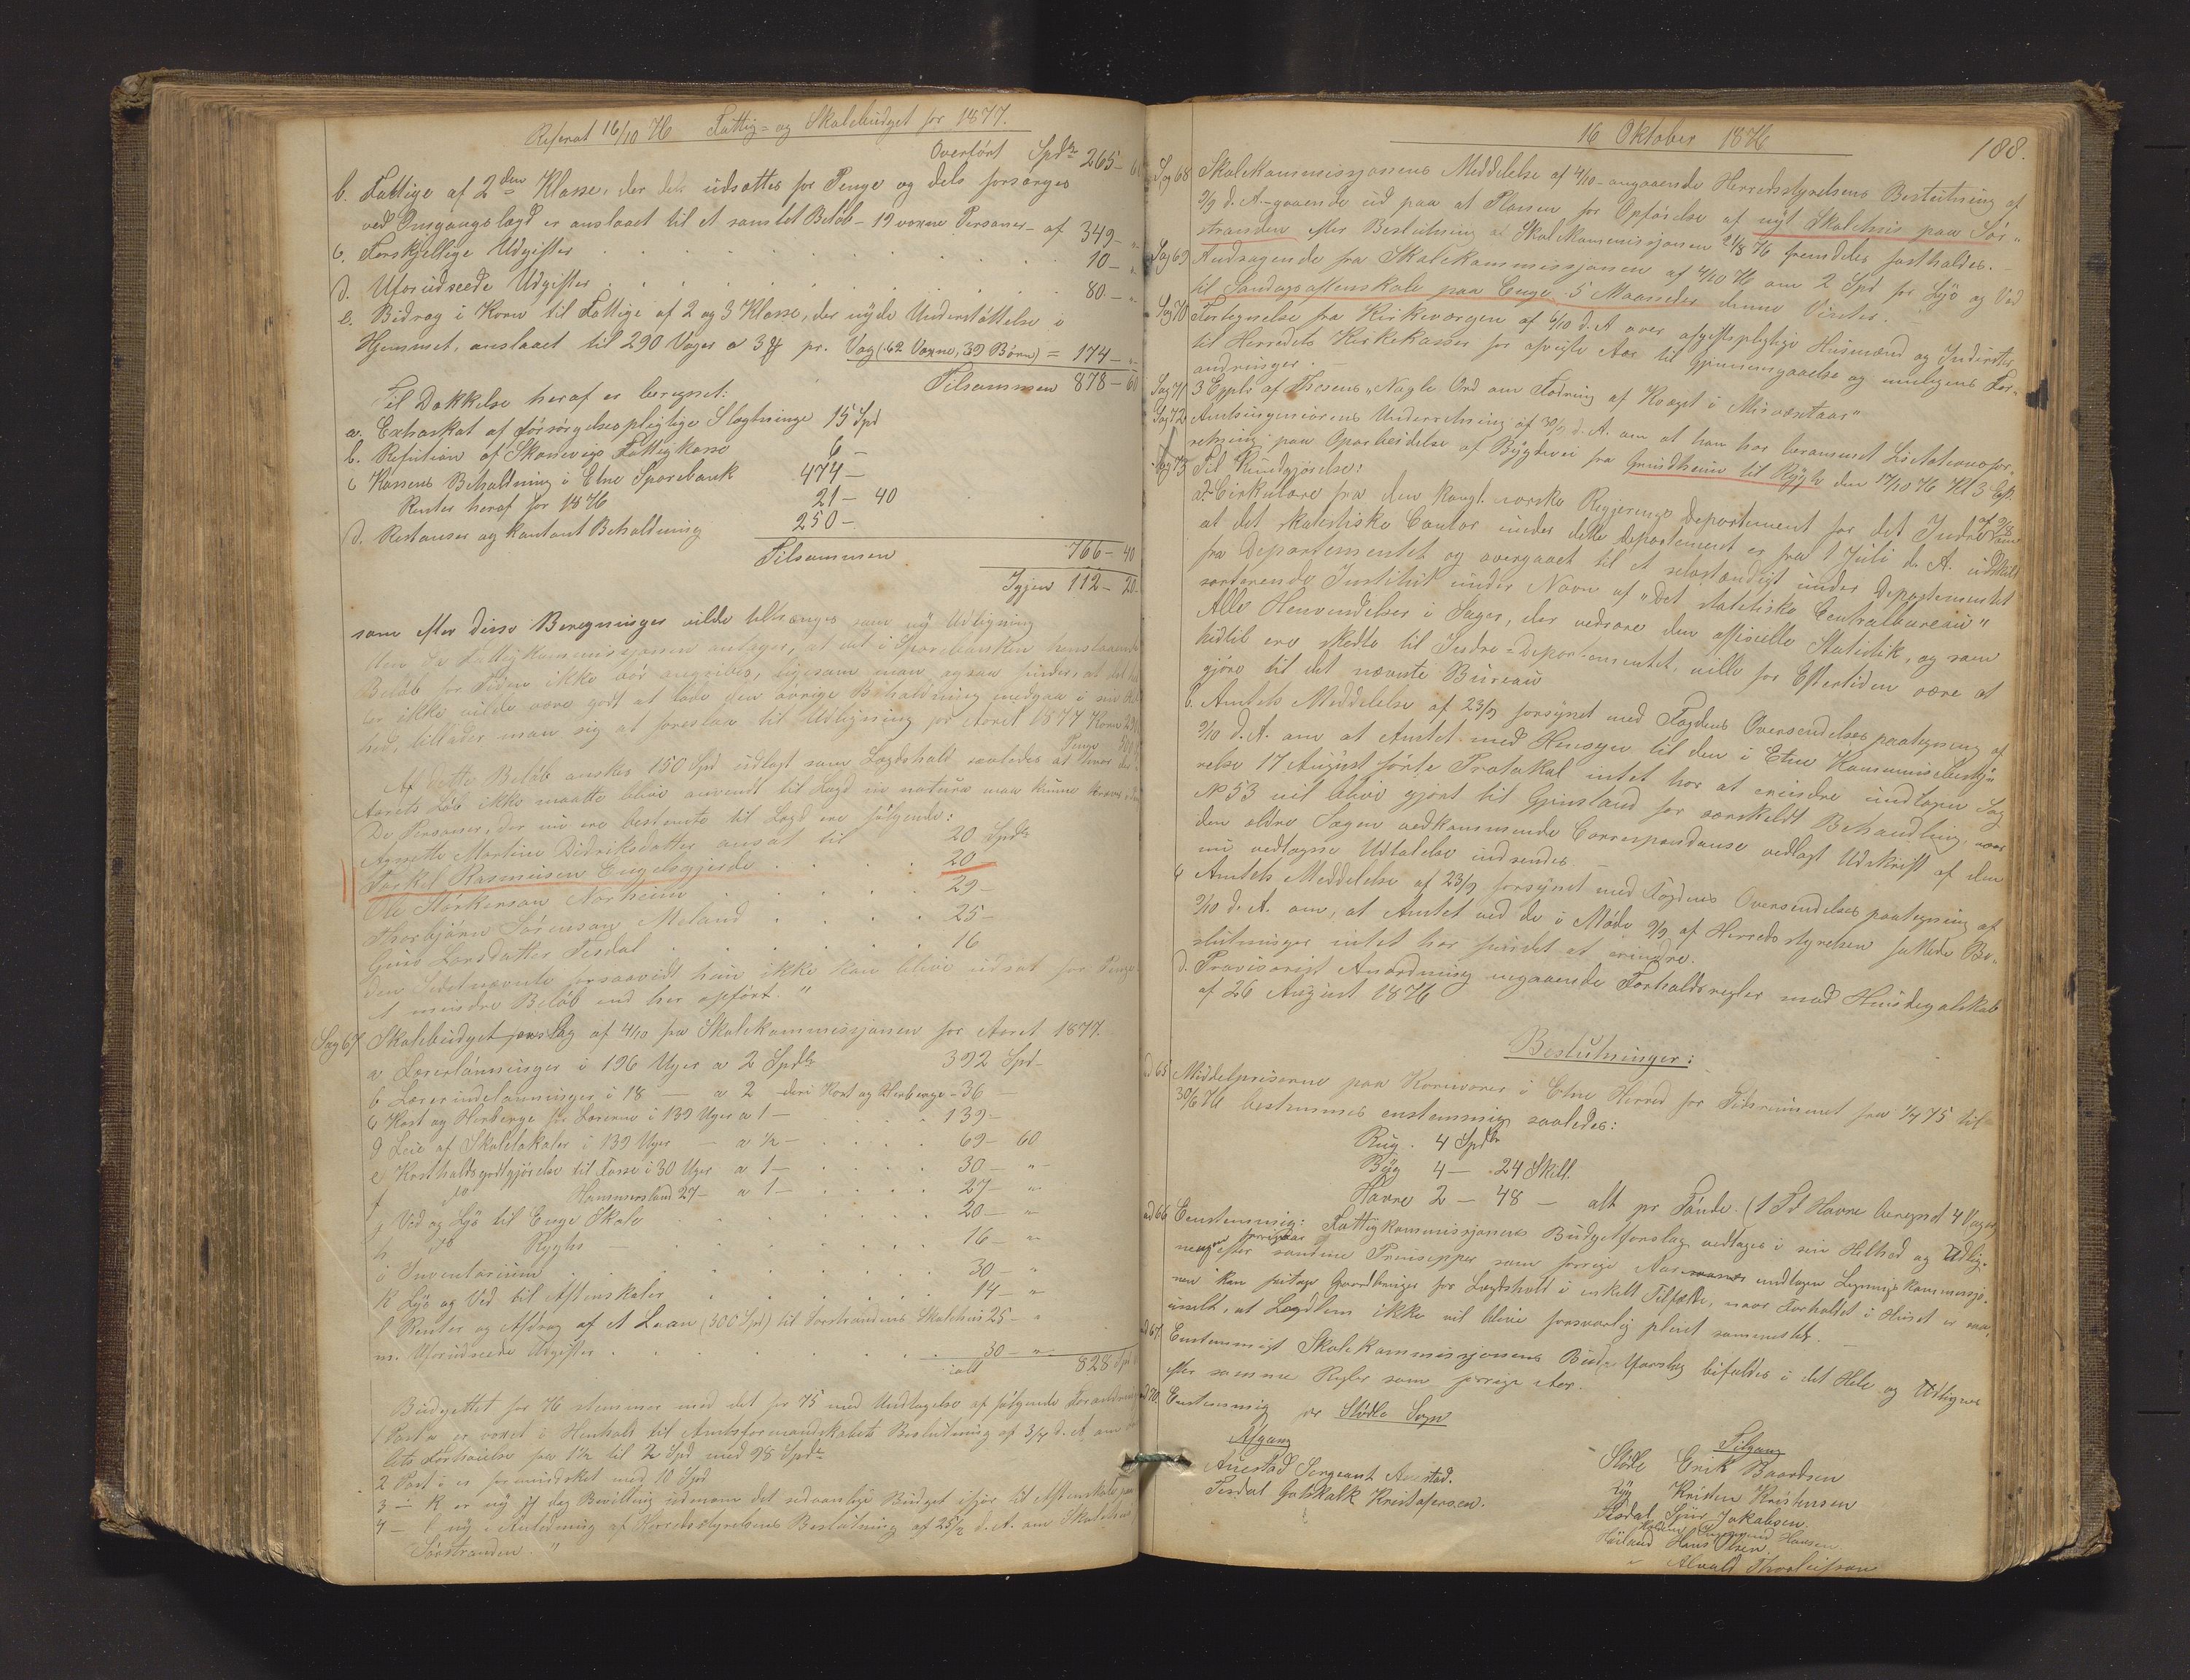 Referat 16/10 76 Fattig- og Skolebudget for 1877.
Overført Spdlr 265 - 60
b. Fattige af 2den Klasse, der dels udsættes for Penge og dels forsørges
ved Omgangslægd er anslaaet til et samlet Beløb - 19 voxne Personer - af 349 - "
c. Forskjellige Udgifter 10 - "
d. Uforudseede Udgifter 80 - "
e. Bidrag i Korn til Fattige af 2 og 3 Klasse, der nyde Understøttelse i
Hjemmet, anslaaet til 290 Vager a 3 pr. Vog (62 Voxne, 39 Børn) = 174 - "
Tilsammen 878 - 60
Til Dækkelse heraf er beregnet:
a. Extraskat af forsørgelsespligtige Slægtninge 15 Spd
b. Refusion af Skonevigs Fattigkasse 6 -
c Kassens Beholdning i Etne Sparebank 474 -
Renter heraf for 1876 21 - 40
d. Restanser og kontant Beholdning 250 -
Tilsammen 766 - 40
Igjen 112 - 20
som efter disse Beregninger vilde tiltrænges som ny Udligning
Men da Fattigkommissjonen antager, at det i Sparebanken henstaaende
Beløb for Tiden ikke bør angribes, ligesom man ogsaa finder, at det
ikke vilde være godt at lade den øvrige Beholdning medgaa i sin Hel
hed, tillader man sig at foreslaa til Udligning for Aaret 1877 Korn 290
Penge
Af dette Beløb ønskes 150 Spd udlagt som Lægdshold saaledes at hvor der
Aarets Løb ikke maatte blive anvendt til Lægd in natura maa kunne kræves
De Personer, der nu ere bestemte til Lægd ere følgende:
Agnethe Martine Didriksdatter ansat til 20 Spdlr
Torkel Rasmusen Engelsgjerde 20
Ole Størkersøn Norheim 29 -
Thorbjørn Sørensøn Meland 25 -
Guro Larsdatter Tesdal 16
den Sidstnævnte forsaavidt hun ikke kan blive udsat for Penge
et mindre Beløb end her opført. "
Sag 67 Skolebudgetforslag af 4/10 fra Skolekommissjonen for Aaret 1877.
a Lærerlønninger i 196 Uger a 2 Spdlr 392 Spd -
b Lærerindelønninger i 18 — a 2 deri Kost og Herberge - 36 —
c Kost og Herberge for Lærerne i 139 Uger a 1 — 139 -
d Leie af Skolelokaler i 139 Uger — a ½ - 69 - 60
e Kostholdsgodtgjørelse til Fosse i 30 Uger a 1 — 30 - "
f do Hammersland 27 - a 1 — 27 - "
g Ved og Lys til Enge Skole 20 - "
h do Rygh — 16 - "
i Inventarium 30 - "
k Lys og Ved til Aftenskoler 14 - "
l Renter og Afdrag af et Laan (300 Spd) til Sørstrandens Skolehus 25 - "
m. Uforudseede Udgifter 30 - "
ialt 828 Spd
Budgettet for 76 stemmer med det for 75 med Undtagelse af følgende Forandringer
1 Post a er voxet i Henhold til Amtsformandskabets Beslutning af 3/7 d. A. om
lets Forhøielse fra 1½ til 2 Spd med 98 Spdlr
2 Post i er formindsket med 10 Spd
3 — k er ny jf dog Bevilling udenom det sedvanlige Budget ifjor til Aftenskole paa
4 — l ny i Anledning af Herredsstyrelsens Beslutning af 25/2 d. A. om Skolehus
Sørstranden. "
16 Oktober 1876
188.
Sag 68 Skolekommissjonens Meddelelse af 4/10 angaaende Herredsstyrelsens Beslutning af
9/9 d. A. gaaende ud paa at Planen for Opførelse af nyt Skolehus paa Sør-
stranden efter Beslutning af Skolekommissjonen 21/8 76 fremdeles fastholdes. —
Sag 69 Andragende fra Skolekommissjonen af 4/10 76 om 2 Spd for Lys og Ved
til Søndagsaftenskole paa Enge 5 Maaneder denne Vinter. —
Sag 70 Fortegnelse fra Kirkeværgen af 6/10 d. A over afgiftspligtige Husmænd og Inderster
til Herredets Kirkekasser for afvigte Aar til Gjennemgaaelse og muligens For-
andringer. —
Sag 71 3 Expl. af Thesens „Nogle Ord om Fodring af Kvæget i Misvextaar"
Sag 72 Amtsingeniørens Underretning af 30/9 d. A. om at han har berammet Lisitationsfor-
retning paa Oparbeidelse af Bygdevei fra Grindheim til Rygh den 17/10 76 Kl 3 Eft.
Sag 73 Til Kundgjørelse:
a. Cirkulære fra den kongl. norske Regjerings Departement for det Indre af 9/8 om
at det statistiske Contor under dette departement er fra 1 Juli d. A. udskilt
fra Departementet og overgaaet til et selvstændigt under Departementet
sorterende Institut under Navn af „Det statistiske Centralbureau"
Alle Henvendelser i Sager, der vedrøre den officielle Statistik, og som
hidtil ere skedte til Indre-Departementet, ville for Eftertiden være at
gjøre til det nævnte Bureau
b. Amtets Meddelelse af 23/9 forsynet med Fogdens Oversendelsespaategning af
9/10 d. A. om at Amtet med Hensyn til den i Etne Kommunebesty-
relse 17 August førte Protokol intet har at erindre undtagen Sag
No 53 vil blive gjort til Gjenstand for særskildt Behandling, naar
den ældre Sagen vedkommende Correspondanse vedlagt Udskrift af den
nu vedtagne Udtalelse indsendes. —
c Amtets Meddelelse af 23/9 forsynet med Fogdens Oversendelsespaategning af
9/10 d. A. om, at Amtet ved de i Møde 9/9 af Herredsstyrelsen fattede Be-
slutninger intet har fundet at erindre.
d. Provisorisk Anordning angaaende Forholdsregler mod Hundegalskab
af 26 August 1876
Beslutninger:
ad 65 Middelpriserne paa Kornvarer i Etne Herred for Tidsrummet fra 1/7 75 til
30/6 76 bestemmes enstemmig saaledes:
Rug. 4 Spdlr
Byg 4 — . 24 Skill.
Havre 2 — 48 — alt pr Tønde. (1 Td Havre beregnet 4 Vager)
ad 66 Eenstemmig: Fattigkommissjonens Budgetforslag vedtages i sin Helhed og Udlig-
ningen efter samme Prinsipper som forrige Aar undtagen Legningskommissjo-
nen kan fritage Gaardbruger for Lægdshold i enkelt Tilfælde, naar Forholdet i Huset er saa
uselt, at Lægdlem ikke vil blive forsvarlig pleiet sammesteds. —
ad 67 Enstemmigt Skolekommissjonens Budgetforslag bifaldes i det Hele og Udlignes
efter samme Regler som forrige Aar.
ad 70. Eenstemmig for Stødle Sogn
Afgang
Auestad Sergeant Auestad.
Tesdal Gotskalk Kristofersen.
Tilgang
Støle Erik Baardsen
Ryg Kristen Kristensen
Tesdal Sjur Jakobsen.
Ingemund Hansen
Høiland Hans Olsen.
" Alvald Thorleifson